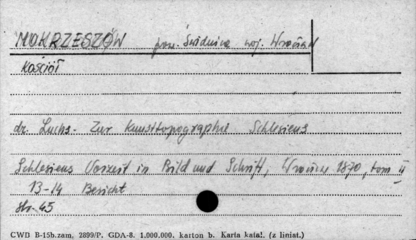 MOKRZESZÓW pow. Świdnica woj. Wrocław
Kościół
dr. Luchs. Zur Kunsttopographie Schlesiens
Schlesiens Vorzeit in Bild und Schrift, Wrocław 1870, tom II
13-14 Bericht
Str. 45
CWD B-15b. zam. 2899/P. GDA-8. 1.000.000. karton b. Karta katal. (z liniat.)